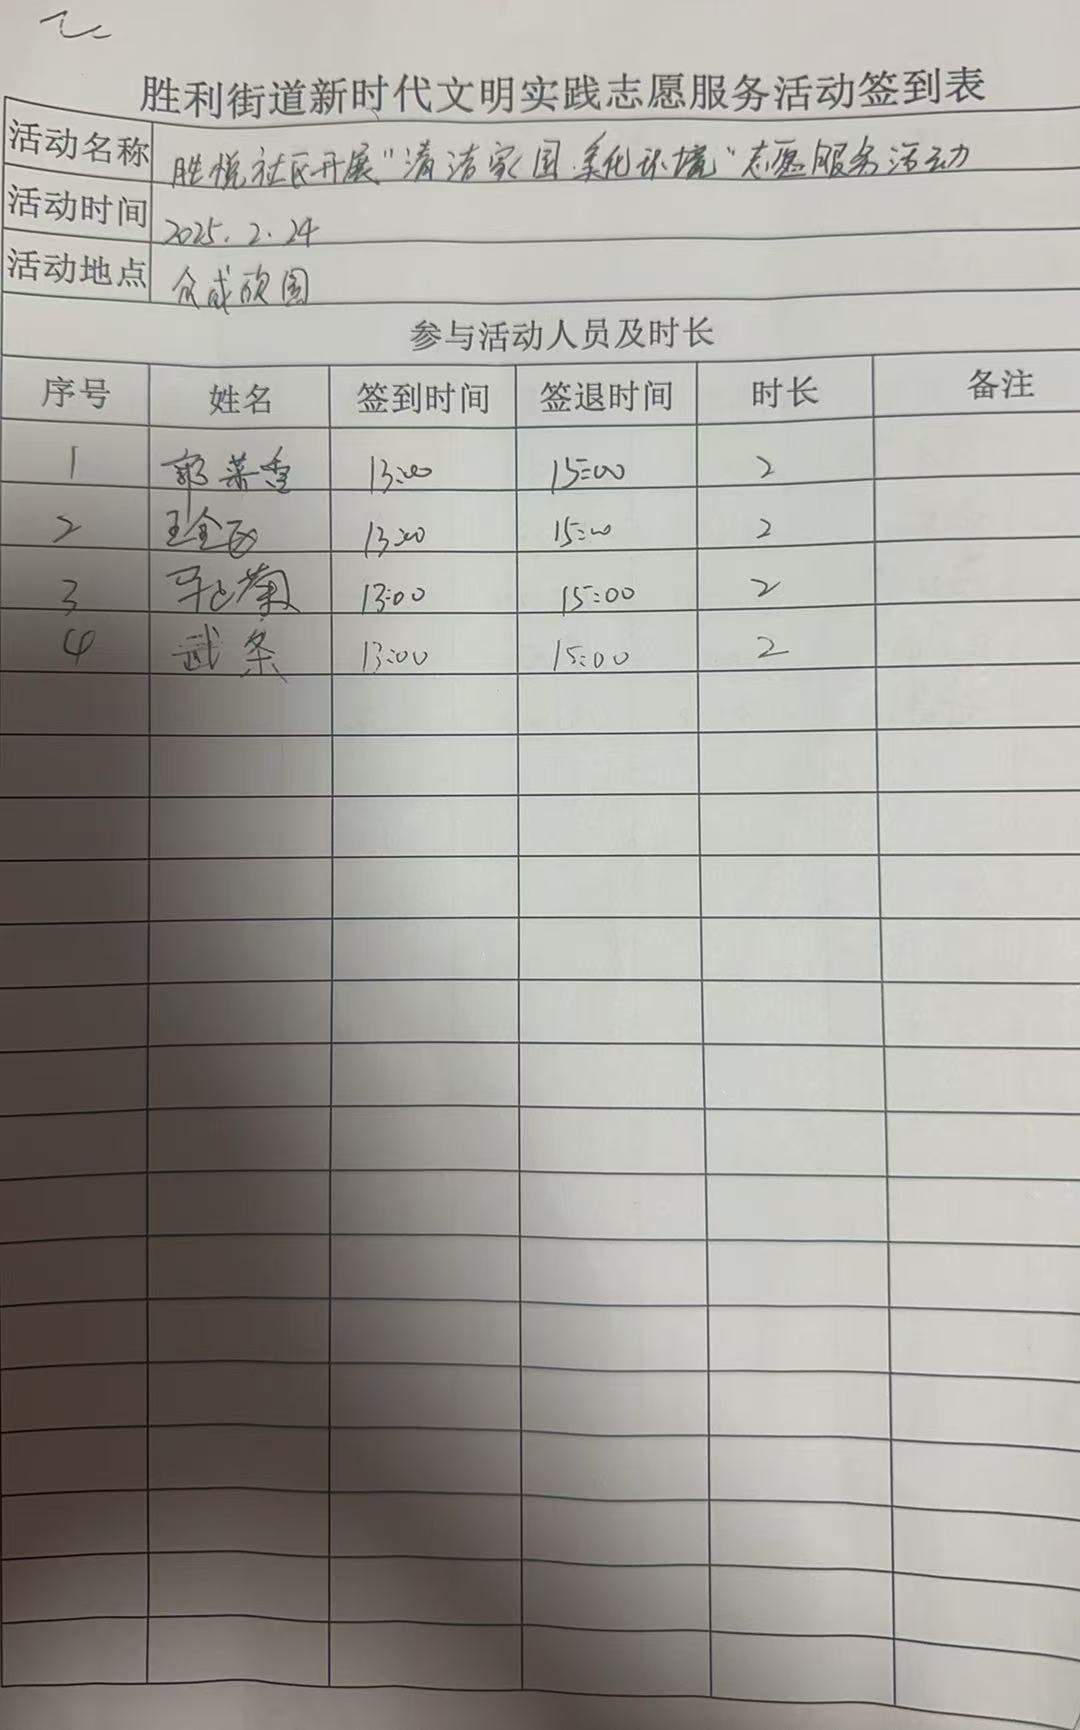 胜利街道新时代文明实践志愿服务活动签到表
活动名称 胜悦社区开展"清洁家园 美化环境"志愿服务活动
活动时间 2025.2.24
活动地点 众成欣园
参与活动人员及时长
序号 姓名 签到时间 签退时间 时长 备注
1 郭菜香 13:00 15:00 2
2 王全民 13:00 15:00 2
3 13:00 15:00 2
4 武条 13:00 15:00 2